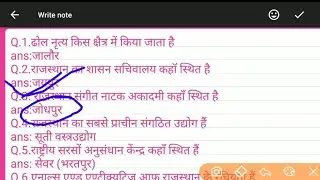 Write note
Q.1.ढोल नृत्य किस क्षैत्र में किया जाता है
ans:जालौर
Q.2.राजस्थान का शासन सचिवालय कहाँ स्थित है
ans:जयपुर
Q.3.राजस्थान संगीत नाटक अकादमी कहाँ स्थित है
ans:जोधपुर
Q.4.राजस्थान का सबसे प्राचीन संगठित उद्योग हैं
ans: सूती वस्त्रउद्योग
Q.5.राष्ट्रीय सरसों अनुसंधान केंन्द्र कहाँ स्थित हैं
ans: सेवर (भरतपुर)
Q.6.एनाल्स एण्ड एण्टीक्यटिज आफ राजस्थान के